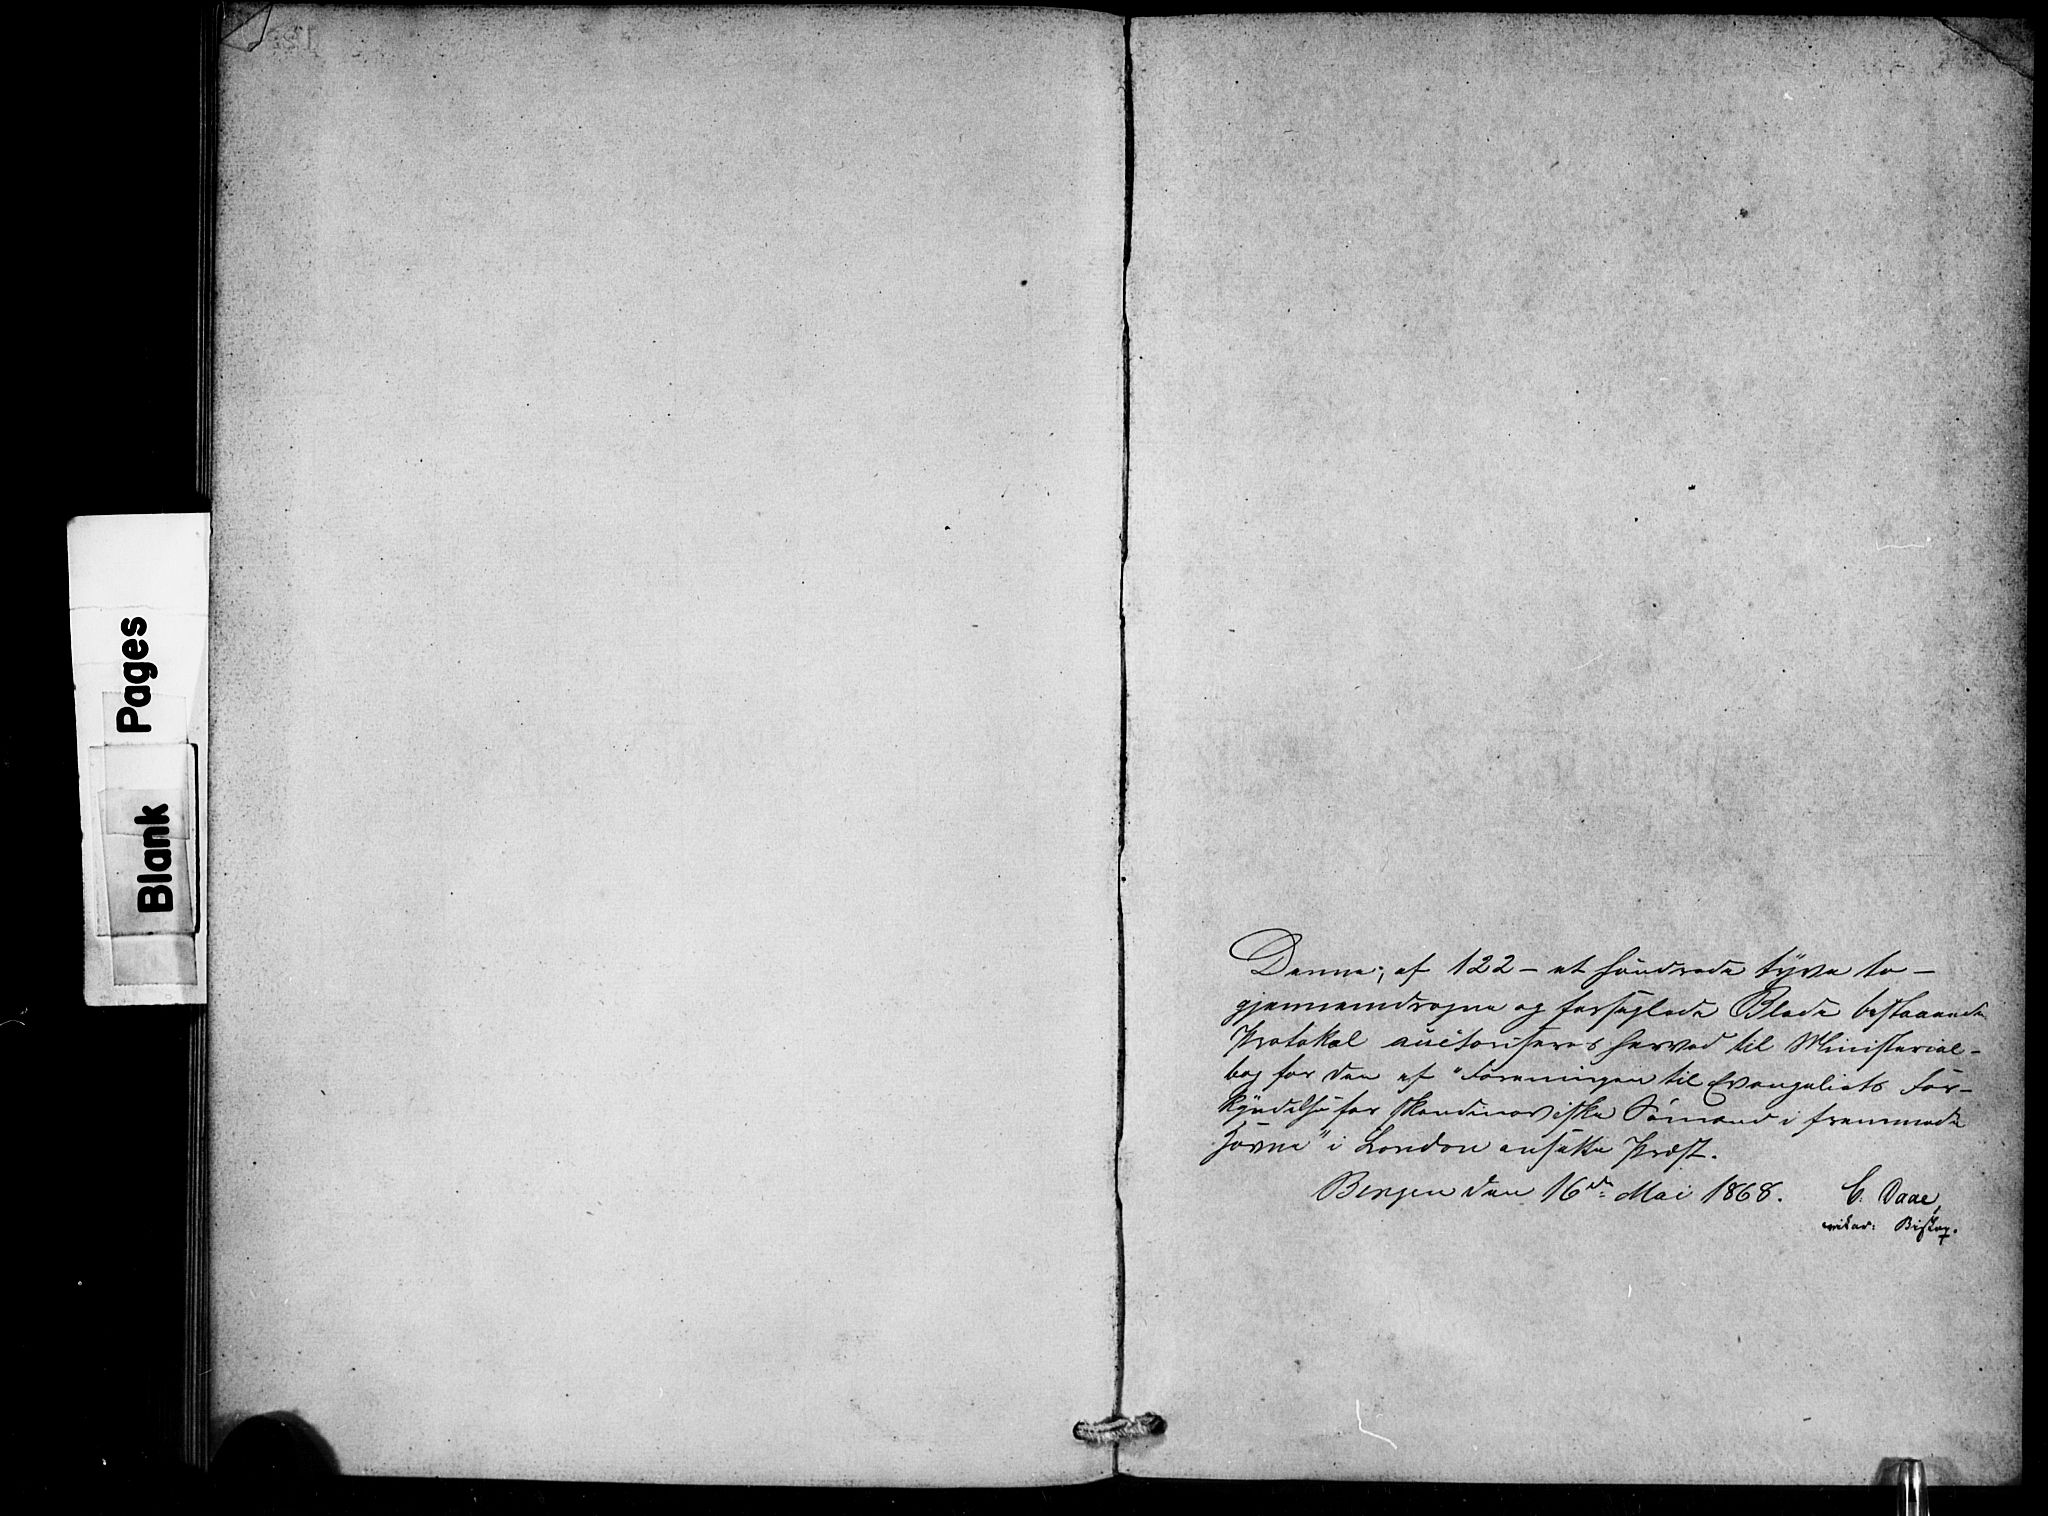 Blank Pages
Denne, af 122 – et hundrede tyve to –
gjennemdragne og forseglede Blade bestaaende
Protokol auctoriseres herved til Ministerial-
bog for den af "Foreningen til Evangeliets For-
kyndelse for skandinaviske Sømænd i fremmede
Havne" i London ansatte Præst.
Bergen den 16de Mai 1868. C. Daae,
vikar: Biskop.